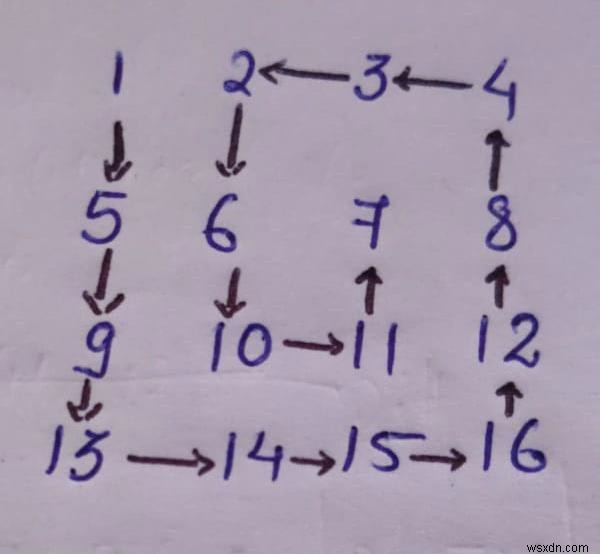 1 2 ← 3 ← 4
↓ ↓ ↑
5 6 7 8
↓ ↓ ↑ ↑
9 10 → 11 12
↓ ↑
13 → 14 → 15 → 16
wsxdn.com